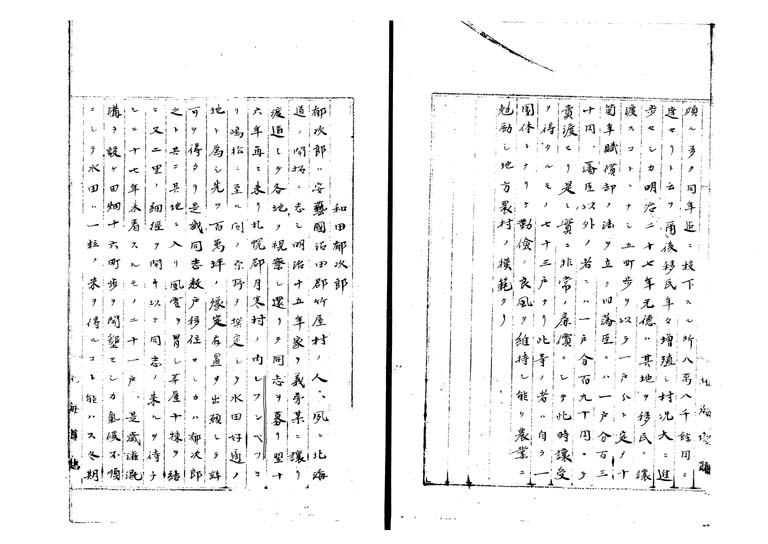 頗ル多ク同年迄ニ投下シタル所八萬八千餘円ニ
達セリト云フ爾後移民年々増殖シ村況大ニ進
歩セシカ明治二十七年元德ハ其地ヲ移民ニ讓
渡スコトヽナシ五町歩ヲ以テ一戸分ト定メ十
箇年賦償却ノ法ヲ立テ旧藩臣ニハ一戸分百三
十円、藩臣以外ノ者ニハ一戸分百九十円ニテ
賣渡セリ是レ實ニ非常ノ廉價ニシテ此時讓受
ヲ得タルモノ七十三戸ナリ此等ノ者ハ自ラ一
團体トナリテ勤儉ノ良風ヲ維持シ能ク農業ニ
勉勵シ地方農村ノ模範タリ
北海道廳
和田郁次郎
郁次郎ハ安藝國沼田郡竹屋村ノ人、夙ニ北海
道ノ開拓ニ志シ明治十五年家ヲ義弟某ニ讓リ
渡道シテ各地ヲ視察シ還リテ同志ヲ募リ翌十
六年再ヒ来リ札幌郡月寒村ノ内シフンベツヨ
リ嶋松ニ至ル間ノ原野ヲ撰定シテ水田好適ノ
地ト為シ先ツ百萬坪ノ豫定存置ヲ出願シテ許
可ヲ得タリ是歳同志数戸移住セシカハ郁次郎
之ト共ニ其地ニ入リ風雪ヲ冒シ茅屋十棟ヲ結
ヒ又二里ノ細径ヲ開キ以テ同志ノ来ルヲ待チ
シニ十七年来着スルモノ二十一戸、是歳灌漑
溝ヲ設ケ田畑十六町歩ヲ開墾セシカ氣候不順
ニシテ水田ハ一粒ノ米ヲ得ルコト能ハス冬期
北海道廳